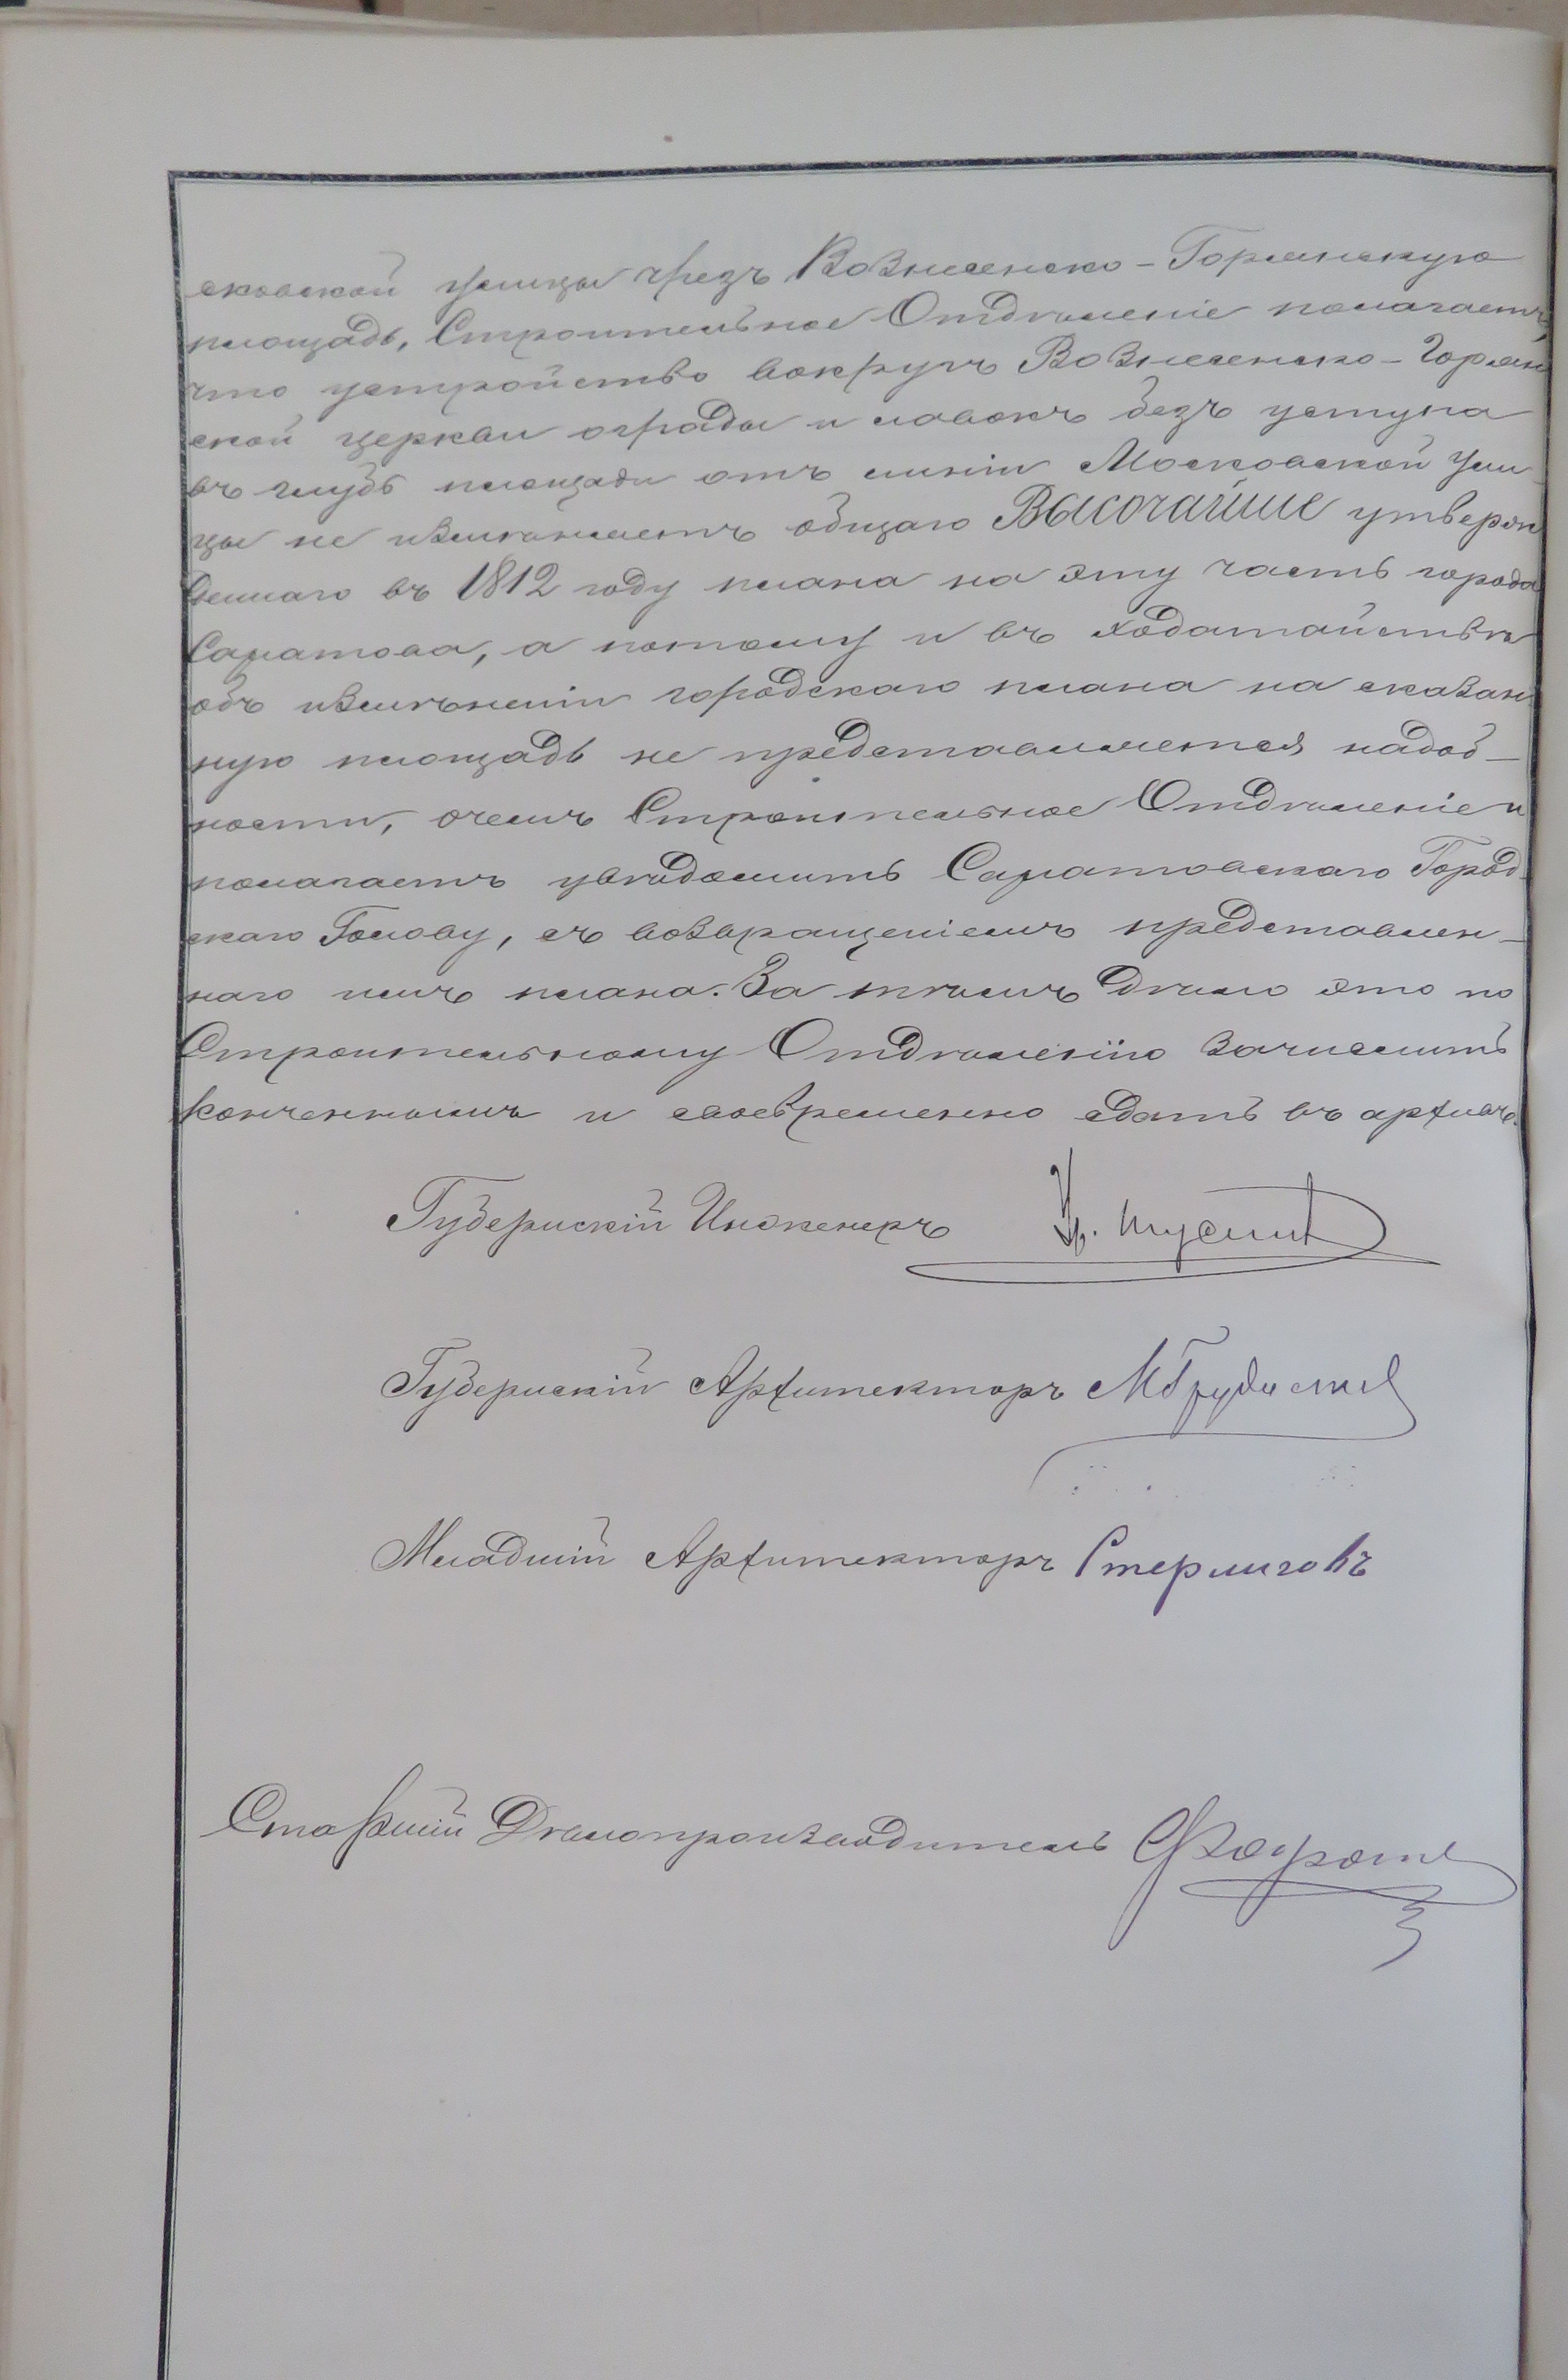 сковской улицы чрезъ Вознесенско-Горянскую
площадь, Строительное Отдѣленіе полагаетъ,
что устройство вокругъ Вознесенско-Горян
ской церкви ограды и лавокъ безъ уступа
въ глубь площади отъ линіи Московской Ули
цы не измѣняетъ общаго Высочайше утверж
деннаго въ 1812 году плана на эту часть города
Саратова, а потому и въ ходатайствѣ
объ измѣненіи городскаго плана на сказан
ную площадь не представляется надоб-
ности, о чемъ Строительное Отдѣленіе и
полагаетъ увѣдомить Саратовскаго Город-
скаго Голову, съ возвращеніемъ представлен-
наго имъ плана. За тѣмъ дѣло это по
Строительному Отдѣленію зачислить
конченнымъ и своевременно сдать въ архивъ.
Губернскій Инженеръ
Губернскій Архитекторъ
Младшій Архитекторъ Стерлиговъ
Старшій Дѣлопроизводитель